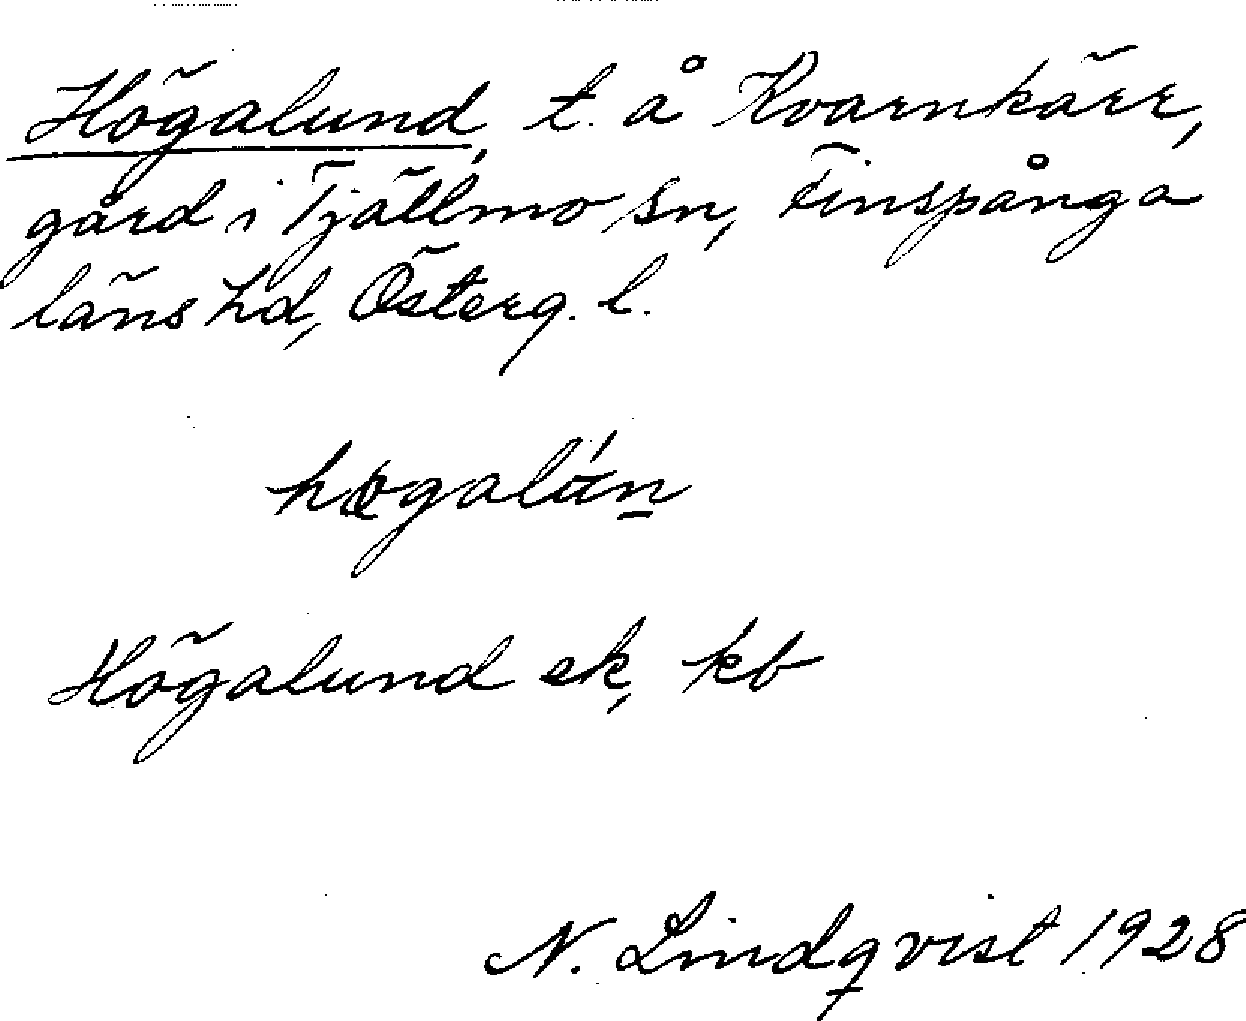 Högalund, t. å Kvarnkärr,
gård i Tjällmo sn, Finspånga
läns hd, Österg. l.
høgalún
Högalund ek, kb
N. Lindqvist 1928